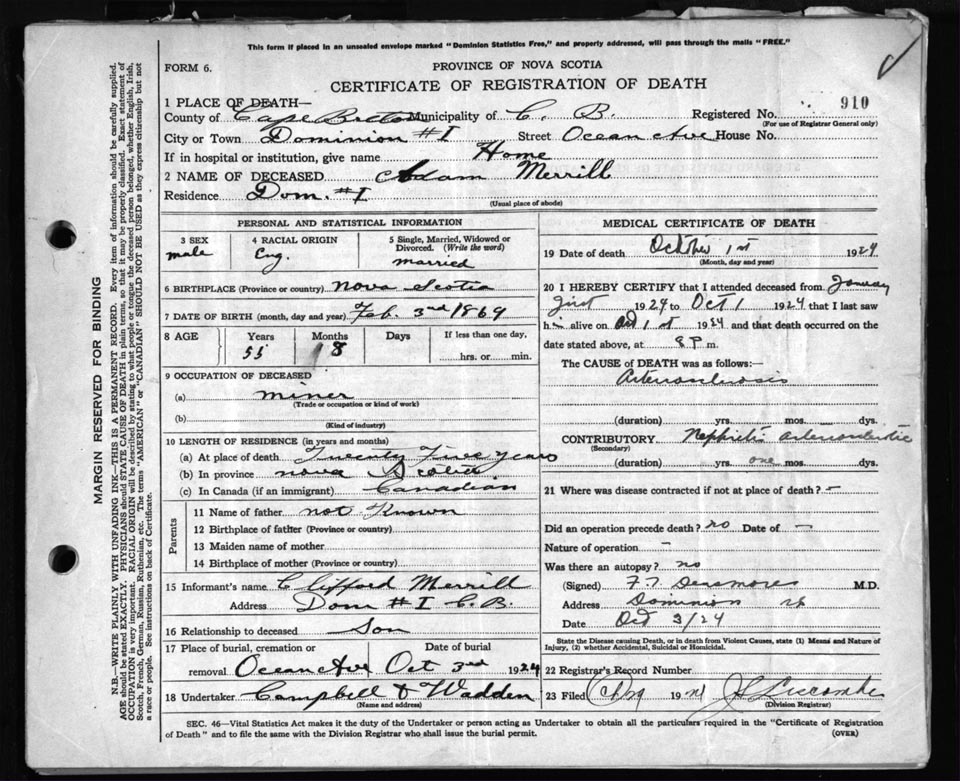 This form if placed in an unsealed envelope marked "Dominion Statistics Free," and properly addressed, will pass through the mails "FREE."
FORM 6.
PROVINCE OF NOVA SCOTIA
CERTIFICATE OF REGISTRATION OF DEATH
910
1 PLACE OF DEATH—
County of Cape Breton Municipality of C. B. Registered No.
(For use of Registrar General only)
City or Town Dominion #1 Street Ocean Ave House No.
If in hospital or institution, give name Home
2 NAME OF DECEASED Adam Merrill
Residence Dom. #1
(Usual place of abode)
PERSONAL AND STATISTICAL INFORMATION
3 SEX male
4 RACIAL ORIGIN Eng.
5 Single, Married, Widowed or Divorced. (Write the word) married
6 BIRTHPLACE (Province or country) Nova Scotia
7 DATE OF BIRTH (month, day and year) Feb. 3rd 1869
8 AGE Years Months Days If less than one day,
55 8 hrs. or min.
9 OCCUPATION OF DECEASED
(a) miner
(Trade or occupation or kind of work)
(b)
(Kind of industry)
10 LENGTH OF RESIDENCE (in years and months)
(a) At place of death Twenty Five years
(b) In province nova Scotia
(c) In Canada (if an immigrant) Canadian
Parents
11 Name of father not Known
12 Birthplace of father (Province or country)
13 Maiden name of mother
14 Birthplace of mother (Province or country)
15 Informant's name Clifford Merrill
Address Dom #1 C.B.
16 Relationship to deceased Son
17 Place of burial, cremation or removal Ocean Ave
Date of burial Oct 3rd 1924
18 Undertaker Campbell & Wadden
(Name and address)
MEDICAL CERTIFICATE OF DEATH
19 Date of death October 1st 1924
(Month, day and year)
20 I HEREBY CERTIFY that I attended deceased from January
first 1924 to Oct 1 1924 that I last saw
him alive on Oct 1st 1924 and that death occurred on the
date stated above, at 8 P m.
The CAUSE of DEATH was as follows:—
(duration) yrs. mos. dys.
CONTRIBUTORY Nephritis
(Secondary)
(duration) yrs. one mos. dys.
21 Where was disease contracted if not at place of death? –
Did an operation precede death? no Date of –
Nature of operation –
Was there an autopsy? no
(Signed) F. T. Densmore M.D.
Address Dominion
Date Oct 3/24
State the Disease causing Death, or in death from Violent Causes, state (1) Means and Nature of
Injury, (2) whether Accidental, Suicidal or Homicidal.
22 Registrar's Record Number
23 Filed 19
(Division Registrar)
SEC. 46—Vital Statistics Act makes it the duty of the Undertaker or person acting as Undertaker to obtain all the particulars required in the "Certificate of Registration
of Death" and to file the same with the Division Registrar who shall issue the burial permit.
(OVER)
MARGIN RESERVED FOR BINDING
N.B.—WRITE PLAINLY WITH UNFADING INK—THIS IS A PERMANENT RECORD. Every item of information should be carefully supplied.
AGE should be stated EXACTLY. PHYSICIANS should STATE CAUSE OF DEATH in plain terms, so that it may be properly classified. Exact statement of
OCCUPATION is very important. RACIAL ORIGIN will be described by stating to what people or tongue the deceased person belonged, whether English, Irish,
Scotch, French, German, Russian, Ruthenian, etc. The terms "AMERICAN" or "CANADIAN" SHOULD NOT BE USED as they express citizenship but not
a race or people. See instructions on back of Certificate.